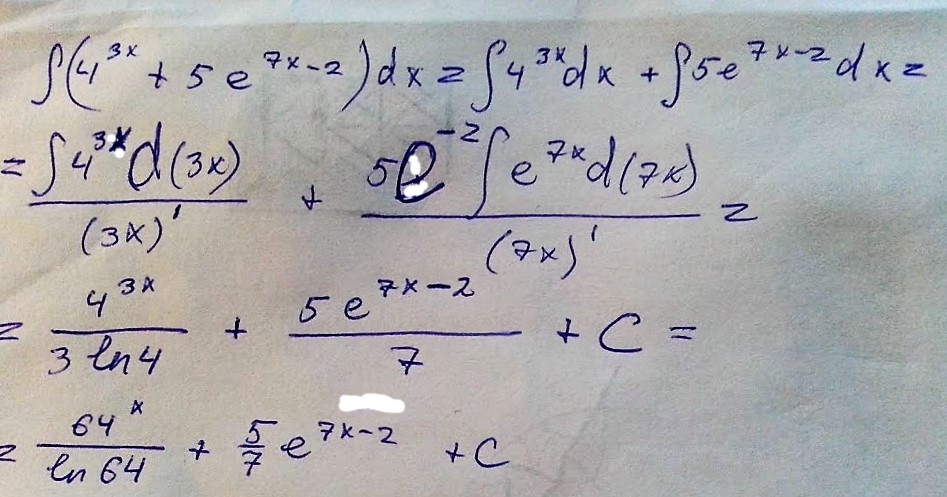 ∫(4^{3x} + 5e^{7x-2})dx = ∫4^{3x}dx + ∫5e^{7x-2}dx =
= \frac{∫4^{3x}d(3x)}{(3x)'} + \frac{5e^{-2}∫e^{7x}d(7x)}{(7x)'} =
= \frac{4^{3x}}{3 ln4} + \frac{5e^{7x-2}}{7} + C =
= \frac{64^{x}}{ln 64} + \frac{5}{7}e^{7x-2} + C